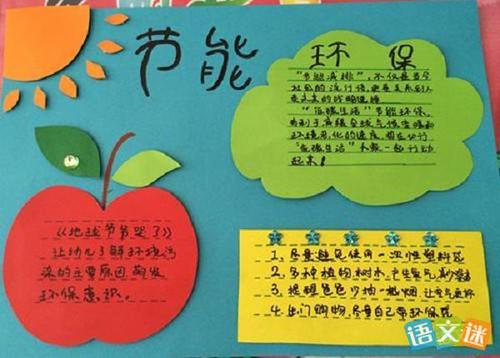 节能 环保
"节能减排",不仅是当今
社会的流行语,更是关系到人
类未来的战略选择
"低碳生活"节能环保,
有利于减缓全球气候变暖和
环境恶化的速度
"低碳生活"
起来!
《地球爷爷哭了》
让幼儿了解环境污
染的主要原因
环保意识。
1、尽量避免使用一次性塑料袋
2、多种植物树木,产生氧气
3、提醒爸爸少抽一帆烟
4、出门购物,尽量自己带环保袋
语文迷